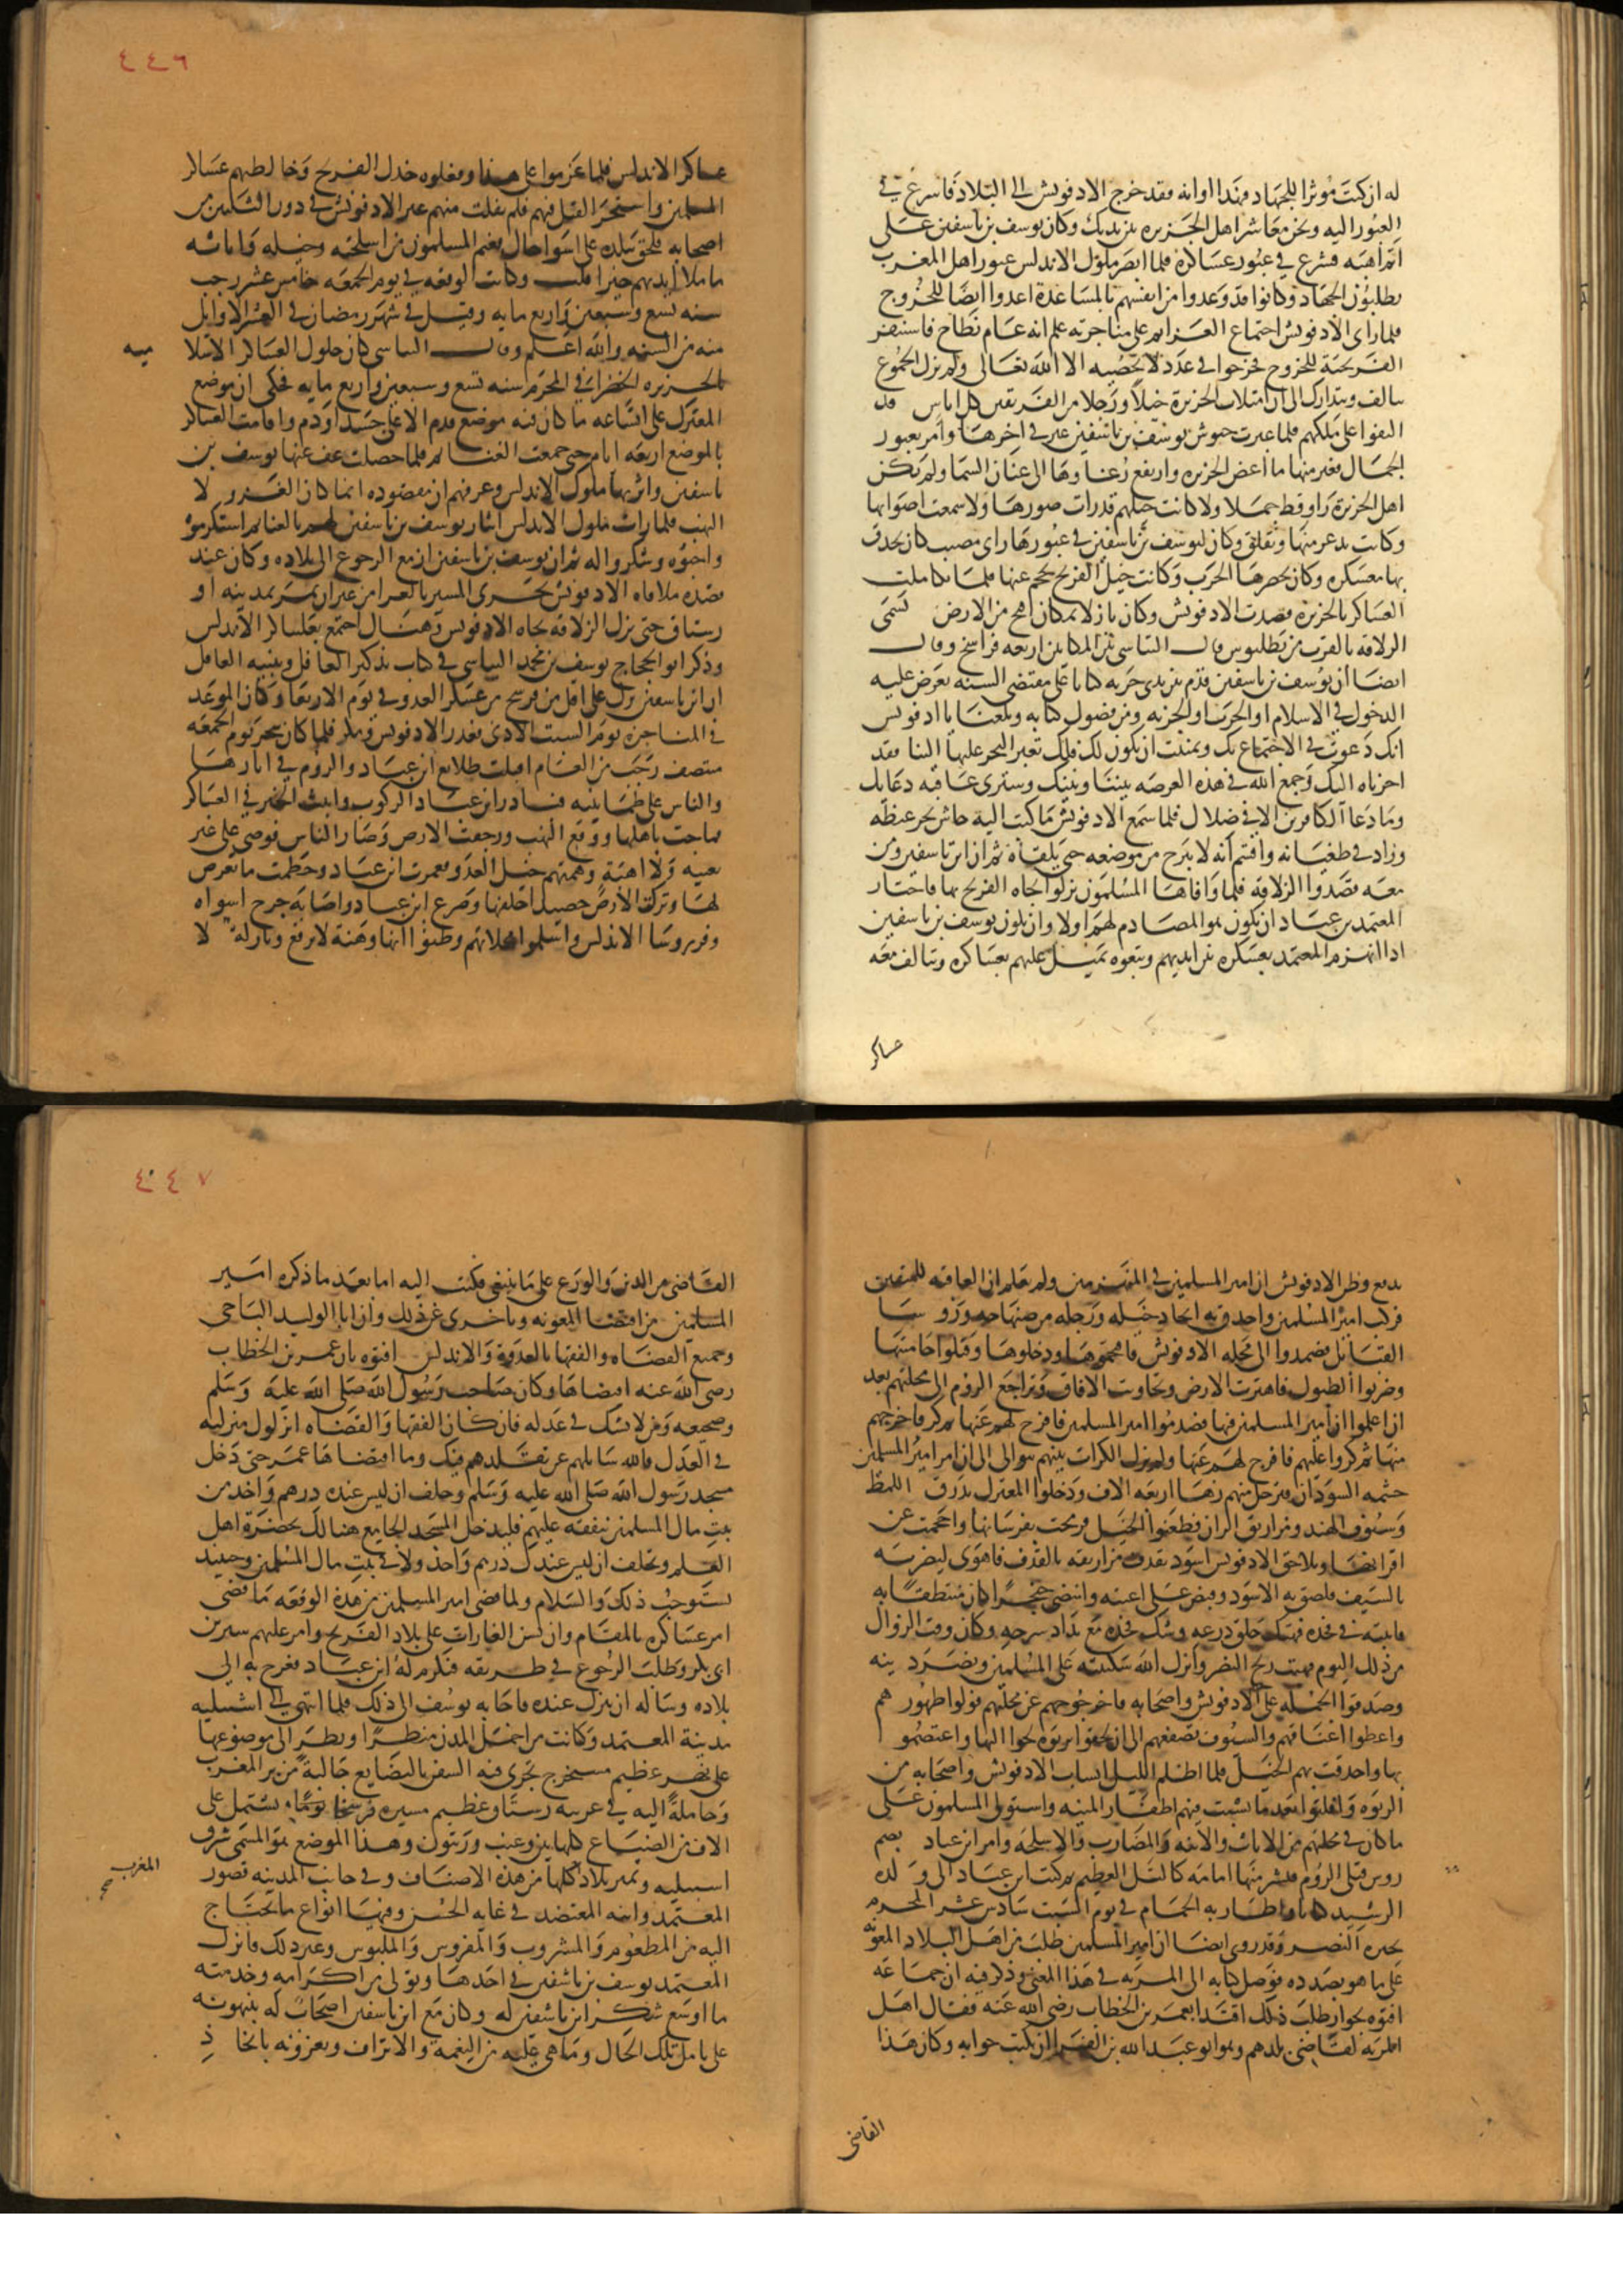 له ان كنت مؤثرا للجهاد فهذا اوانه فقد خرج الادفونش الى البلاد فاسرع في
العبور اليه ونحن معاشر اهل الجزيره بين يديك وكان يوسف بن تاشفين على
اتم اهبه فشرع في عبور عساكره فلما ابصر ملوك الاندلس عبور اهل المغرب
يطلبون الجهاد وكانوا قد وعدوا من انفسهم بالمساعدة اعدوا ايضا للخروج
فلما راى الادفونش اجتماع العزايم على مناجزته علم انه عام نطاح فاستنفر
الفرنجية للخروج فخرجوا في عدد لا يحصيه الا الله تعالى ولم تزل الجموع
تتالف وتتدارك الى ان امتلات الجزيرة خيلا ورجلا من الفريقين كل اناس قد
التفوا على ملكهم فلما عبرت جيوش يوسف بن تاشفين عبر في اخرها وامر بعبور
الجمال فعبر منها ما اغص الجزيره وارتفع رغاوها الى عنان السما ولم يكن
اهل الجزيرة راوا قط جملا ولا كانت خيلهم قد رات صورها ولا سمعت اصواتها
وكانت تدعر منها وتقلق وكان ليوسف بن تاشفين في عبورها راى مصيب كان يحدق
بها معسكره وكان يحضرها الحرب وكانت خيل الفرنج تحجم عنها فلما تكاملت
العساكر بالجزيره قصدت الادفونش وكان نازلا بمكان افيح من الارض تسمى
الزلاقه بالقرب من بطليوس وقال البياسي بين المكانين اربعه فراسخ وقال
ايضا ان يوسف بن تاشفين قدم بين يدى حربه كتابا على مقتضى السنه يعرض عليه
الدخول في الاسلام او الحرب او الجزيه ومن فصول كتابه وبلغنا يا ادفونس
انك دعوت في الاجتماع بك وتمنيت ان يكون لك فلك تعبر البحر عليها الينا فقد
اجزناه اليك وجمع الله في هذه العرصه بيننا وبينك وسترى عاقبه دعايك
وما دعا الكافرين الا في ضلال فلما سمع الادفونش ما كتب اليه جاش بحر غيظه
وزاد في طغيانه واقسم انه لا يبرح من موضعه حتى يلقاه ثم ان ابن تاشفين ومن
معه قصدوا الزلاقه فلما وافاها المسلمون نزلوا تجاه الفرنج بها فاختار
المعتمد بن عباد ان يكون هو المصادم لهم اولا وان يكون يوسف بن تاشفين
اذا انهزم المعتمد بعسكره بين ايديهم وتبعوه يميل عليهم بعساكره وتتالف معه
عساكر
٤٤٦
عساكر الاندلس فلما عزموا على هذا وفعلوه خذل الفرنج وخالطهم عساكر
المسلمين واستحر القتل فيهم فلم يفلت منهم غير الادفونش في دون الثلثين من
اصحابه فلحق ببلده على اسوا حال فغنم المسلمون من اسلحته وخيله واثاثه
ما ملا ايديهم خيرا قلت وكانت الوقعه في يوم الجمعه خامس عشر رجب
سنه تسع وسبعين واربع مايه وقيل في شهر رمضان في العشر الاوايل
منه من السنه والله اعلم وقال البياسي كان حلول العساكر الاسلا
ميه
بالجزيره الخضرا في المحرم سنه تسع وسبعين واربع مايه فحكى ان موضع
المعترك على اتساعه ما كان فيه موضع قدم الا على جسد او دم واقامت العساكر
بالموضع اربعه ايام حتى جمعت الغنايم فلما حصلت عف عنها يوسف بن
تاشفين واثر بها ملوك الاندلس وعرفهم ان مقصوده انما كان الغزو لا
النهب فلما رات ملوك الاندلس ايثار يوسف بن تاشفين لهم بالغنايم استكرموه
واحبوه وشكروا له ثم ان يوسف بن تاشفين ازمع الرجوع الى بلاده وكان عند
قصده ملاقاه الادفونش تحرى المسير بالعرا من غير ان يمر بمدينه او
رستاق حتى نزل الزلاقه تجاه الادفونس وهناك اجتمع بعساكر الاندلس
وذكر ابو الحجاج يوسف بن محمد البياسي في كتاب تذكير العاقل وتنبيه الغافل
ان ابن تاشفين نزل على اقل من فرسخ من عسكر العدو في يوم الاربعا وكان الموعد
في المناجزة يوم السبت الادنى فغدر الادفونس ومكر فلما كان سحر يوم الجمعه
منتصف رجب من العام اقبلت طلايع ابن عباد والروم في اثارها
والناس على طمانينه فبادر ابن عباد الركوب وانبث الخبر في العساكر
فماجت باهلها ووقع البهت ورجفت الارض وصار الناس فوضى على غير
تعبيه ولا اهبة ودهمتهم خيل العدو فغمرت ابن عباد وحطمت ما تعرض
لها وتركت الارض حصيدا خلفها وصرع ابن عباد واصابه جرح اسواه
وفر روسا الاندلس واسلموا محلاتهم وظنوا انها وهنة لا ترقع ونازلة لا
تدفع وظن الادفونش ان امير المسلمين في المنهزمين ولم يعلم ان العاقبه للمتقين
فركب امير المسلمين واحدق به انجاد خيله ورجله من صنهاجه وروسا
القبايل فصمدوا الى محله الادفونش فاقتحموها ودخلوها وقتلوا حاميتها
وضربوا الطبول فاهتزت الارض وتجاوبت الافاق وتراجع الروم الى محلتهم بعد
ان اعلموا ان امير المسلمين فيها فصدموا امير المسلمين فافرج لهم عنها ثم كر فاخرجهم
منها ثم كروا عليهم فافرج لهم عنها ولم تزل الكرات بينهم تتوالى الى ان امر امير المسلمين
حشمه السودان فترجل منهم زها اربعه الاف ودخلوا المعترك بدرق اللمط
وسيوف الهند ومزاريق الزان فطعنوا الخيل فرمحت بفرسانها واحجمت عن
اقرانها وتلاحق الادفونس اسود نفدت مزاريقه بالقذف فاهوى ليضربه
بالسيف فلصق به الاسود وقبض على اعنته وانتضى خنجرا كان متنطقا به
فاثبته في فخده فهتك حلق درعه وشك فخده مع بداد سرجه وكان وقت الزوال
من ذلك اليوم فهبت ريح النصر وانزل الله سكينته على المسلمين ونصر دينه
وصدقوا الحمله على الادفونش واصحابه فاخرجوهم عن محلتهم فولوا ظهورهم
واعطوا اعناقهم والسيوف تصفعهم الى ان لحقوا بربوه لجوا اليها واعتصموا
بها واحدقت بهم الخيل فلما اظلم الليل انساب الادفونش واصحابه من
الربوه وافلتوا بعد ما نشبت فيهم اظفار المنيه واستولى المسلمون على
ما كان في محلتهم من الاثاث والانيه والمضارب والاسلحه وامر ابن عباد بضم
روس قتلى الروم فنشر منها امامه كالتل العظيم ثم كتب ابن عباد الى ولده
الرشيد كتابا واطار به الحمام في يوم السبت سادس عشر المحرم
يخبره النصر وقد روى ايضا ان امير المسلمين طلب من اهل البلاد المعونه
على ما هو بصدده فوصل كتابه الى المريه في هذا المعنى وذكر فيه ان جماعه
افتوه بجواز طلب ذلك اقتدا بعمر بن الخطاب رضى الله عنه فقال اهل
المريه لقاضى بلدهم وهو ابو عبد الله بن الفرا ان يكتب جوابه وكان هذا
القاضى
٤٤٧
القاضى من الدين والورع على ما ينبغى فكتب اليه اما بعد ما ذكره امير
المسلمين من اقتضا المعونه وتاخرى عن ذلك وان ابا الوليد الباجى
وجميع القضاه والفقها بالعدوة والاندلس افتوه بان عمر بن الخطاب
رضى الله عنه اقتضاها وكان صاحب رسول الله صلى الله عليه وسلم
وضجيعه ومن لا شك في عدله فان كان الفقها والقضاه انزلوك منزلته
في العدل فالله سايلهم عن تقلدهم فيك وما اقتضاها عمر حتى دخل
مسجد رسول الله صلى الله عليه وسلم وحلف ان ليس عنده درهم واحد من
بيت مال المسلمين ينفقه عليهم فليدخل المسجد الجامع هنالك بحضرة اهل
العلم وتحلف ان ليس عندك درهم واحد ولا في بيت مال المسلمين وحينيد
تستوجب ذلك والسلام ولما قضى امير المسلمين من هذه الوقعه ما قضى
امر عساكره بالمقام وان تشن الغارات على بلاد الفرنج وامر عليهم سير بن
ابى بكر وطلب الرجوع في طريقه فتكرم له ابن عباد فعرج به الى
بلاده وساله ان ينزل عنده فاجابه يوسف الى ذلك فلما انتهى الى اشبيليه
مدينة المعتمد وكانت من اجمل المدن منظرا ونظر الى موضوعها
على نهر عظيم مستبحر تجرى فيه السفن بالبضايع جالبة من بر المغرب
وحاملة اليه في غربيه رستاق عظيم مسيره عشرين فرسخا يشتمل على
الاف من الضياع كلها تين وعنب وزيتون وهذا الموضع هو المسمى شرف
اشبيليه وتمير بلاد كلها من هذه الاصناف وفي جانب المدينه قصور
المغرب صح
المعتمد وابنه المعتضد في غايه الحسن وفيها انواع ما يحتاج
اليه من المطعوم والمشروب والمفروش والملبوس وغير ذلك فانزل
المعتمد يوسف بن تاشفين في احدها وتولى من اكرامه وخدمته
ما اوسع شكر ابن تاشفين له وكان مع ابن تاشفين اصحاب له ينبهونه
على تامل تلك الحال وما هى عليه من النعمه والاتراف ويغرونه باتخاذ